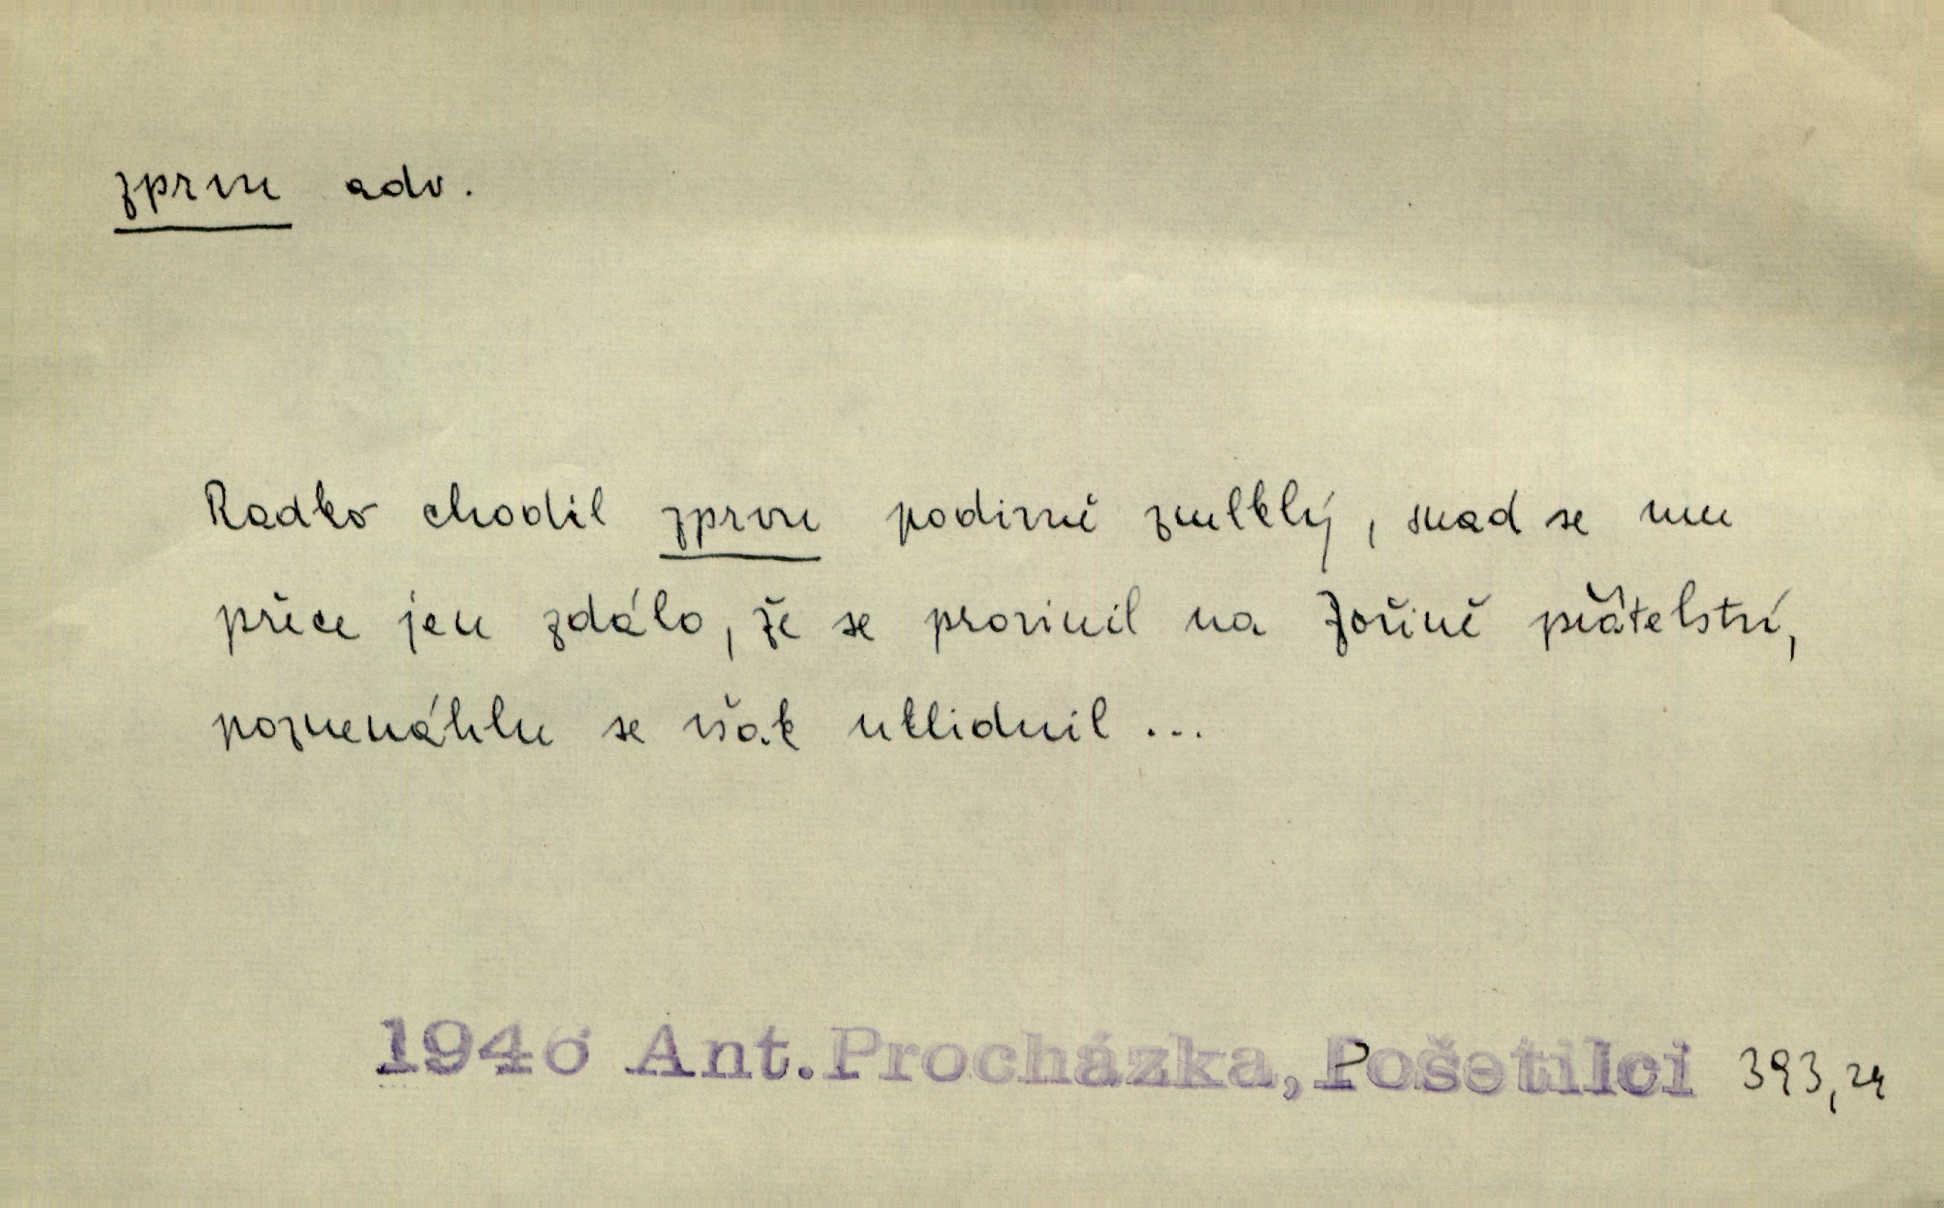 zprvu adv.
Radko chodil zprvu podivně zmlklý, snad se mu
přece jen zdálo, že se provinil na Zořině přátelství,
poznenáhlu se však uklidnil ...
1946 Ant. Procházka, Pošetilci 393,24